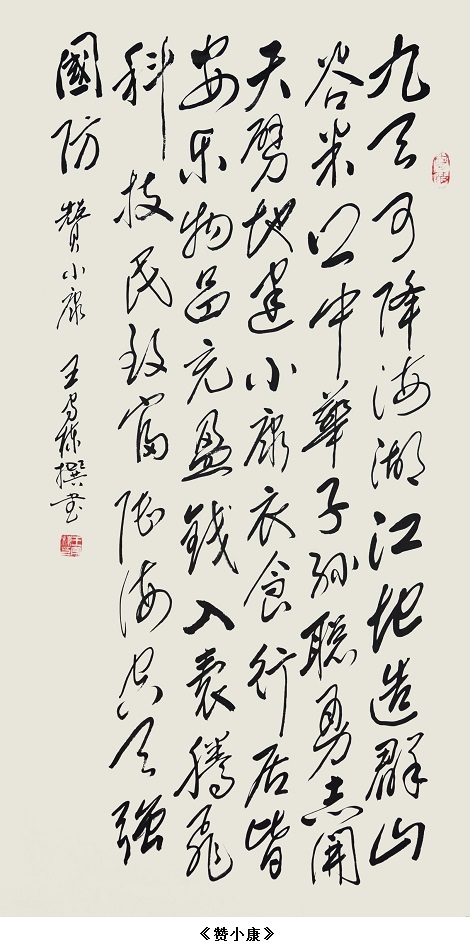 九天可降海湖江地造群山
谷米中華子孙聪勇志開
天劈地建小康衣食行居皆
安乐物品充盈钱入囊腾飛
科技民致富陆海空天強
國防 赞小康 王栋撰书
《赞小康》